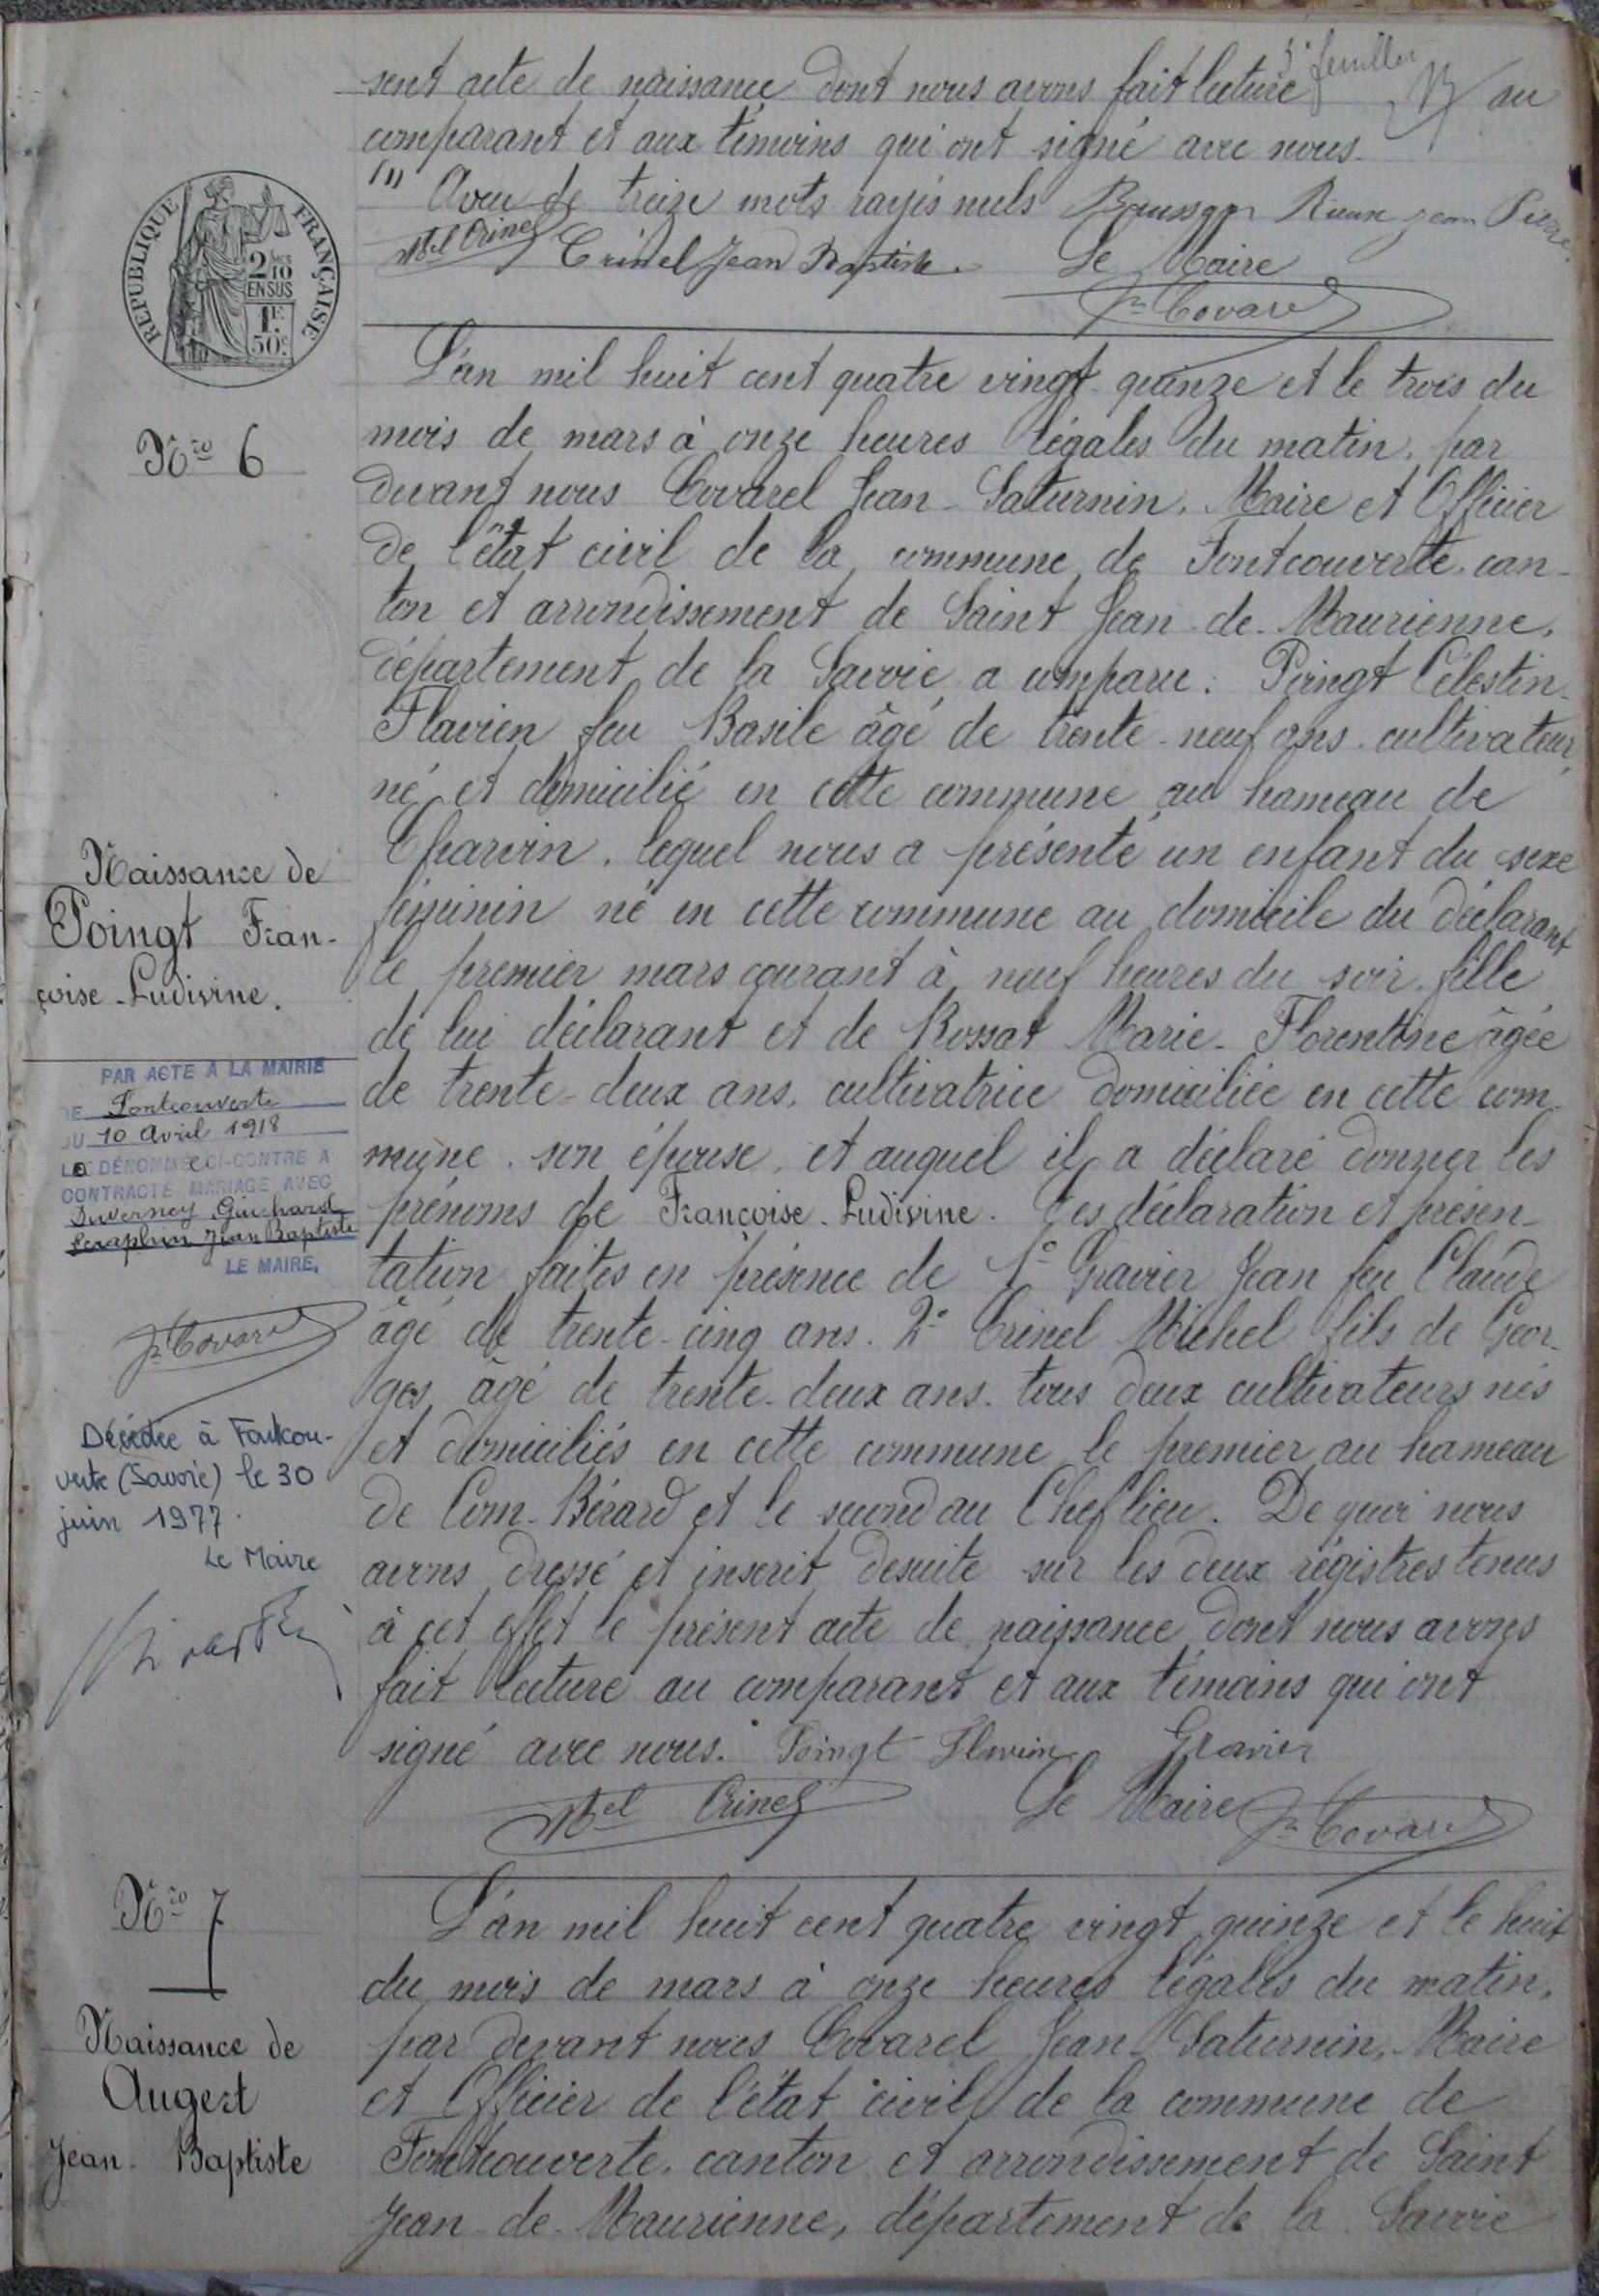 5e feuillet
sent acte de naissance dont nous avons fait lecture au
comparant et aux témoins qui ont signé avec nous.
Aveu de treize mots rayés nuls Rieux Jean Pierre
Mel Crinel Crinel Jean Baptiste. Le Maire
Jn Covarel
REPUBLIQUE FRANÇAISE
2/10
EN SUS
1F
50c
Nro 6
L'an mil huit cent quatre vingt-quinze et le trois du
mois de mars à onze heures légales du matin, par
devant nous Covarel Jean-Saturnin, Maire et Officier
de l'état civil de la commune de Fontcouverte, can-
ton et arrondissement de Saint Jean-de-Maurienne,
département de la Savoie a comparu: Poingt Célestin-
Flavien feu Basile âgé de trente-neuf ans, cultivateur,
né et domicilié en cette commune au hameau de
Charvin, lequel nous a présenté un enfant du sexe
féminin né en cette commune au domicile du déclarant
le premier mars courant à neuf heures du soir, fille
de lui déclarant et de Rossat Marie-Florentine âgée
de trente-deux ans, cultivatrice domiciliée en cette com-
mune, son épouse, et auquel il a déclaré donner les
prénoms de Françoise-Ludivine. Ces déclaration et présen-
tation faites en présence de 1° Gravier Jean feu Claude
âgé de trente-cinq ans. 2° Crinel Michel fils de Geor-
ges, âgé de trente-deux ans. tous deux cultivateurs nés
et domiciliés en cette commune le premier au hameau
de Com-Bérard et le second au Cheflieu. De quoi nous
avons dressé et inscrit desuite sur les deux régistres tenus
à cet effet le présent acte de naissance dont nous avons
fait lecture au comparant et aux témoins qui ont
signé avec nous. Poingt Flavien Gravier
Mel Crinel Le Maire Jn Covarel
Naissance de
Poingt Fran-
çoise-Ludivine.
PAR ACTE A LA MAIRIE
DE Fontcouverte
DU 10 Avril 1918
LA DÉNOMMÉE CI-CONTRE A
CONTRACTÉ MARIAGE AVEC
Duverney Guichard
Séraphin Jean Baptiste
LE MAIRE,
Jn Covarel
Décédée à Fontcou-
verte (Savoie) le 30
juin 1977.
Le Maire
Nro 7
Naissance de
Augert
Jean-Baptiste
L'an mil huit cent quatre vingt quinze et le huit
du mois de mars à onze heures légales du matin,
par devant nous Covarel Jean-Saturnin, Maire
et Officier de l'état civil de la commune de
Fontcouverte, canton et arrondissement de Saint
Jean-de-Maurienne, département de la Savoie